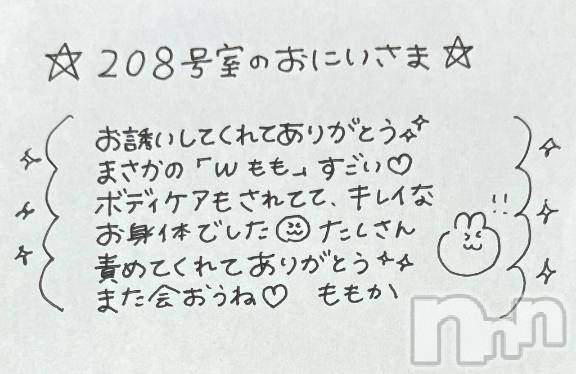 ☆208号室のおにいさま☆
お誘いしてくれてありがとう
まさかの「Wもも」すごい♡
ボディケアもされてて、キレイな
お身体でした たくさん
責めてくれてありがとう
また会おうね♡ ももか
!!
nmn